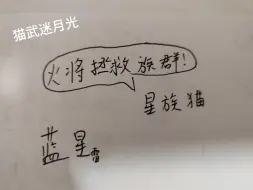 猫武迷月光
火将拯救族群!
星族猫
蓝星雷